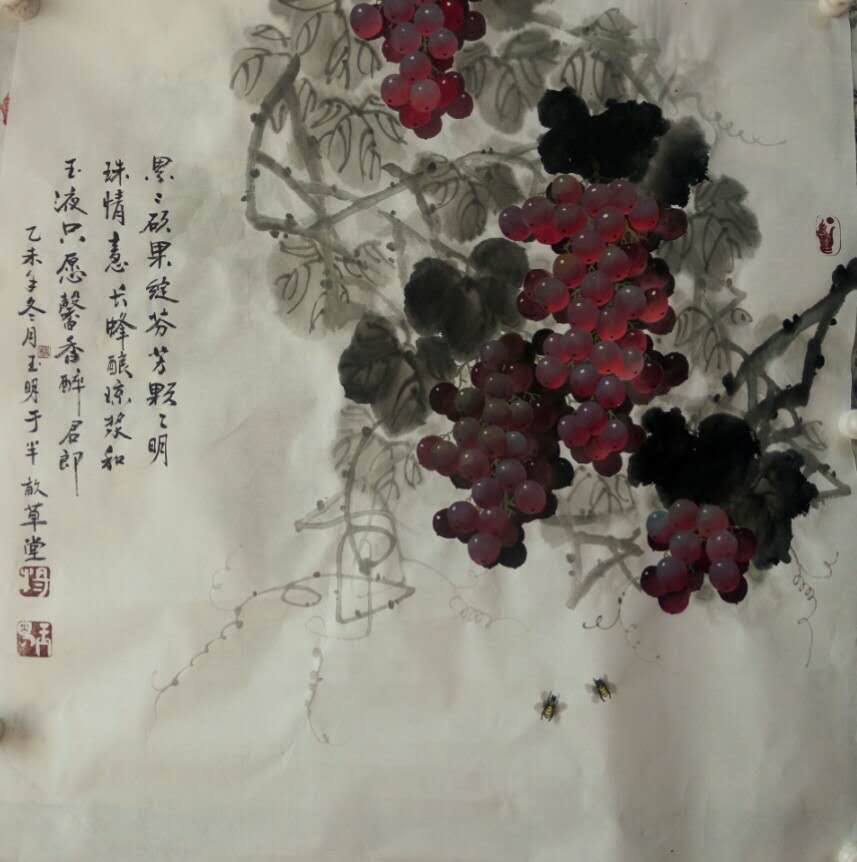 累〻硕果绽芬芳颗〻明
珠情意长蜂酿琼浆和
玉液只愿馨香醉君郎
乙未年冬月玉明于半亩草堂